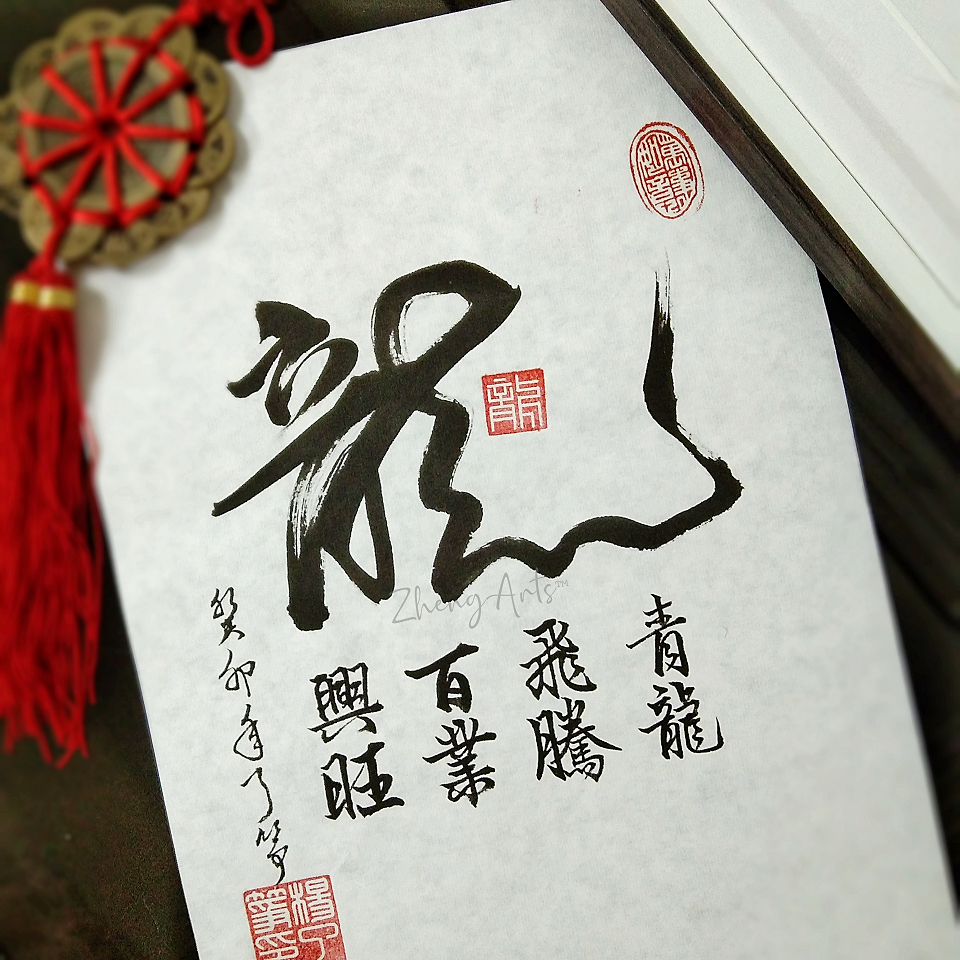 龍
龍
青龍
飛騰
百業
興旺
癸卯年了箏
楊了箏印
Zheng Arts™